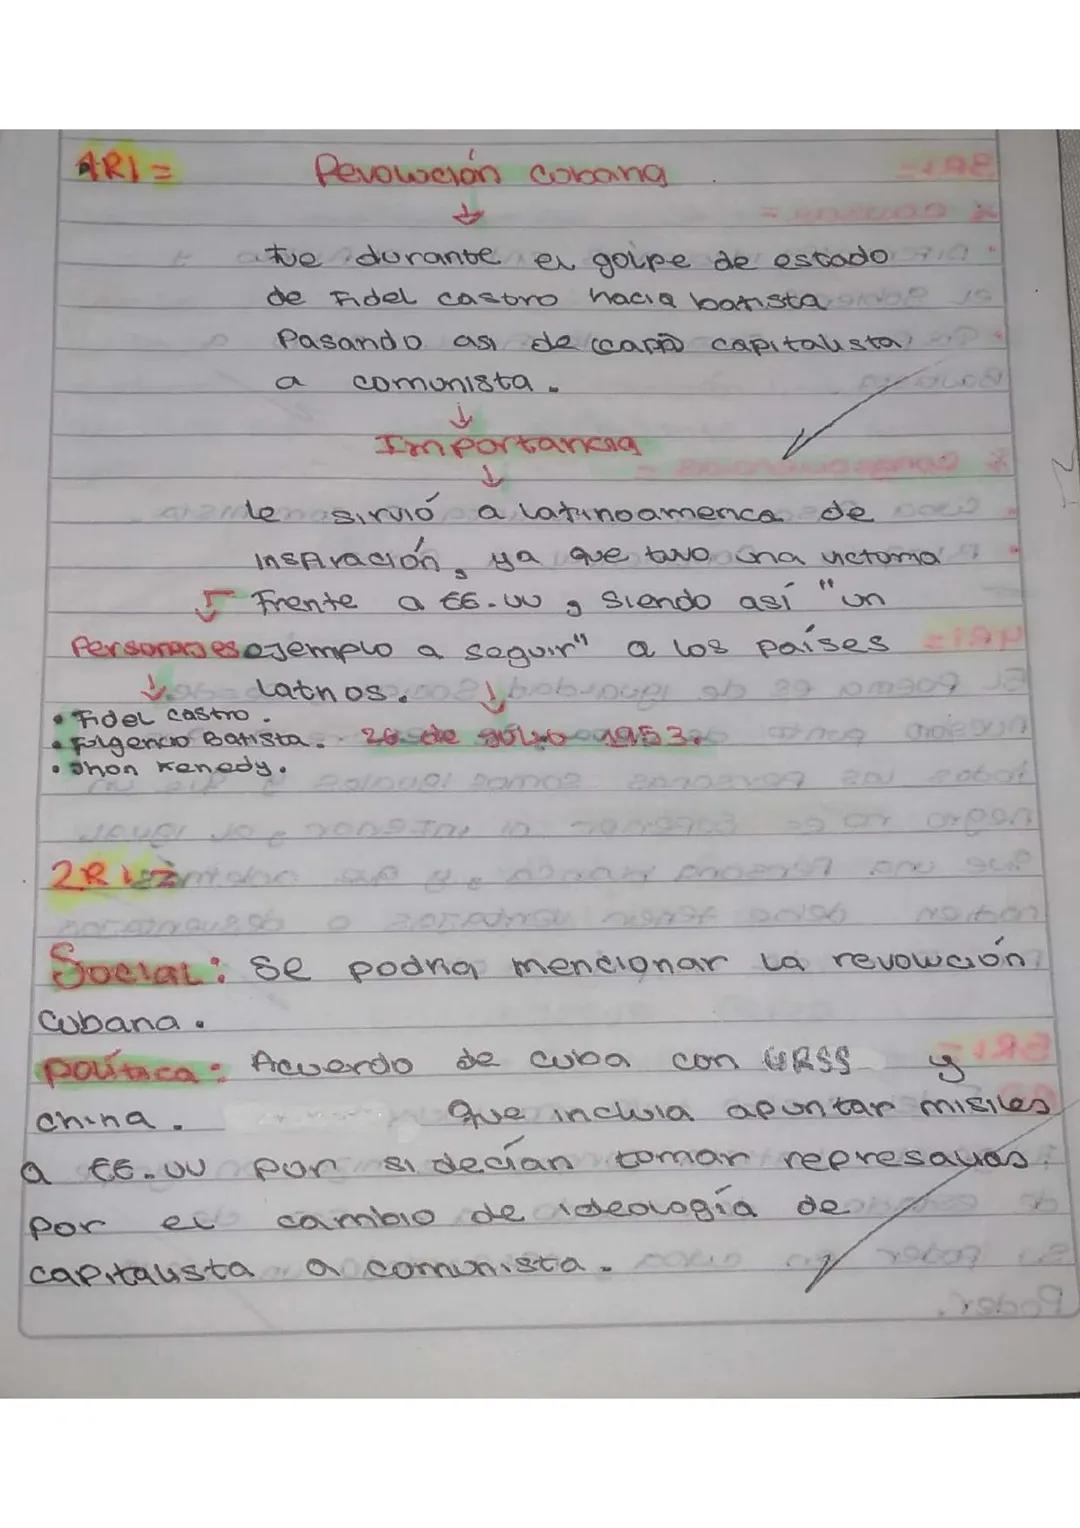 1R1=
Revolución cubana
↓
fue durante el golpe de estado
de Fidel castro hacia batista
Pasando asi de capitalista
a comunista.
↓
Importancia
↓
le sirvió a latinoamerica de
inspiración, ya que tuvo una victoria
Frente a EE.UU, siendo así "un
Personajes ejemplo a seguir" a los países
↓ latinos. ↓
• Fidel castro.
• Fulgencio Batista. 26 de julio 1953.
• Jhon Kenedy.
2R1=
Social: se podria mencionar la revolución
cubana.
política: Acuerdo de cuba con URSS y
china. que incluia apuntar misiles
a EE.UU por si decían tomar represalias
por el cambio de ideología de
capitalista a comunista.